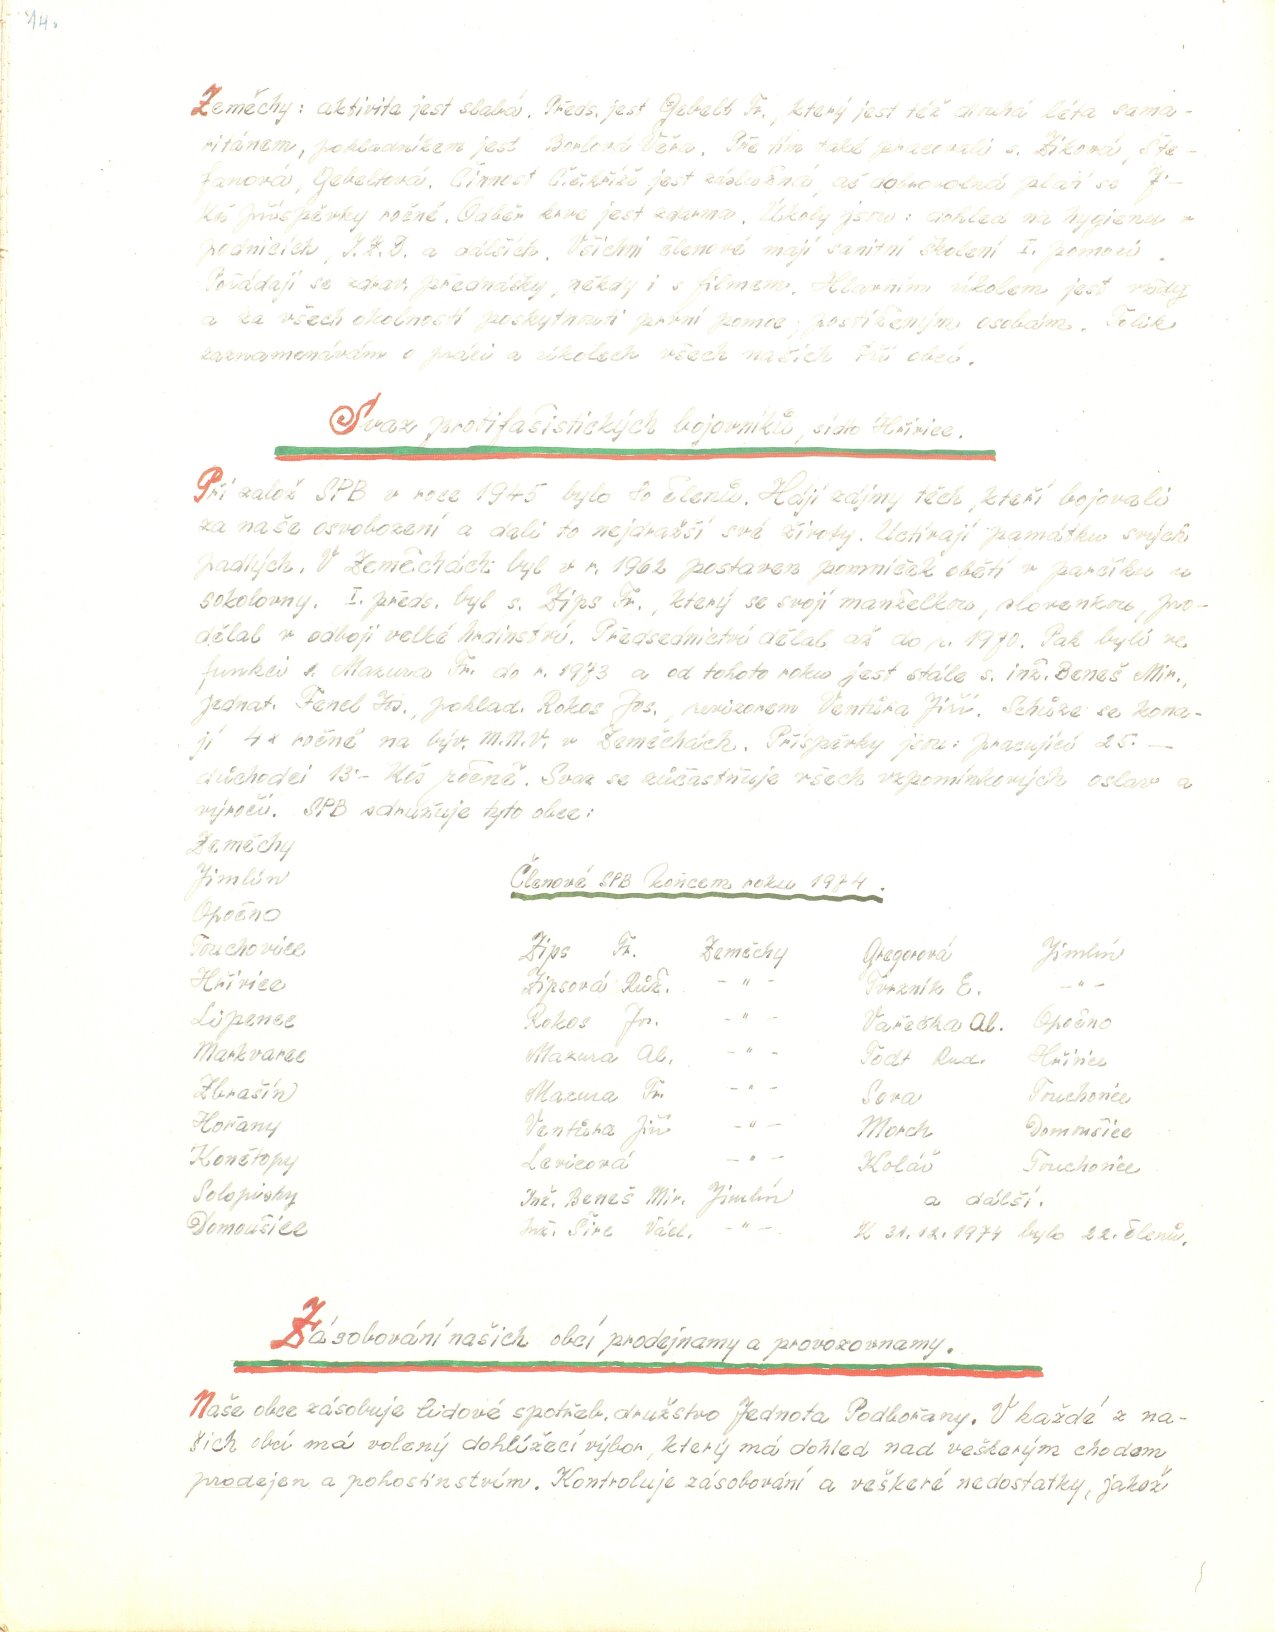 14.
Zeměchy: aktivita jest slabá. Předs. jest Gebelt Fr., který jest též dlouhá léta sama-
ritánem, pokladníkem jest Borlová Věra. Pře tím také pracovali s. Zíková, Ště-
fanová, Gebeltová. Činnost Č.č.kříže jest záslužná, až dobrovolná platí se 7.-
Kčs příspěvky ročně. Odběr krve jest zdarma. Úkoly jsou: dohled na hygienu v
podnicích, J.Z.D. a dalších. Všichni členové mají sanitní školení I. pomoci.
Pořádají se zdrav. přednášky, někdy i s filmem. Hlavním úkolem jest vždy
a za všech okolností poskytnouti první pomoc, postiženým osobám. Tolik
zaznamenávám o práci a úkolech všech našich tří obcí.
Svaz protifašistických bojovníků, sídlo Hřivice.
Při založ SPB v roce 1945 bylo 80 členů. Hájí zájmy těch, kteří bojovali
za naše osvobození a dali to nejdražší své životy. Uctívají památku svých
padlých. V Zeměchách byl v r. 1962 postaven pomníček obětí v parčíku u
sokolovny. I. předs. byl s. Zips Fr., který se svojí manželkou, slovenkou, pro-
dělal v odboji velké hrdinství. Předsednictví dělal až do r. 1970. Pak byli ve
funkci s. Mazura Fr. do r. 1973 a od tohoto roku jest stále s. inž. Beneš Mir.,
jednat. Fencl Jos., poklad. Rokos Jos., revizorem Ventura Jiří. Schůze se kona-
jí 4x ročně na býv. M.N.V. v Zeměchách. Příspěvky jsou: pracující 25.-
důchodci 13.- Kčs ročně. Svaz se zúčastňuje všech vzpomínkových oslav a
výročí. SPB sdružuje tyto obce:
Zeměchy
Jimlín
Opočno
Touchovice
Hřivice
Lipenec
Markvarec
Zbrašín
Hořany
Konětopy
Solopisky
Domoušice
Členové SPB koncem roku 1974.
Zips Fr. Zeměchy Gregorová Jimlín
Zipsová Růž. -"- Tvrzník E. -"-
Rokos Jos. -"- Vařečka Al. Opočno
Mazura Al. -"- Todt Rud. Hřivice
Mazura Fr. -"- Sova Touchovice
Ventura Jiří -"- Morch Domoušice
Levicová -"- Kolář Touchovice
Inž. Beneš Mir. Jimlín a další.
Inž. Širc Václ. -"- K 31.12.1974 bylo 22. členů.
Zásobování našich obcí prodejnamy a provozovnamy.
Naše obce zásobuje lidové spotřeb. družstvo Jednota Podbořany. V každé z na-
šich obcí má volený dohlížecí výbor, který má dohled nad veškerým chodem
prodejen a pohostinstvím. Kontroluje zásobování a veškeré nedostatky, jakož